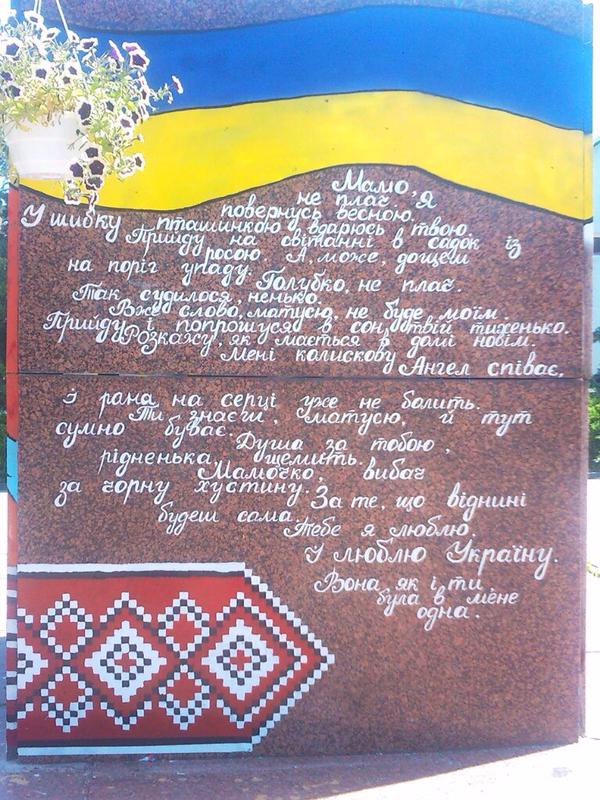 Мамо,
не плач. Я
повернусь весною.
У шибку пташинкою вдарюсь твою.
Прийду на світанні в садок із
росою. А, може, дощем
на поріг упаду.
Голубко, не плач.
Так судилося, ненько.
Вже слово, матусю, не буде моїм.
Прийду і попрошуся в сон твій тихенько.
Розкажу, як мається в домі новім.
Мені колискову Ангел співає,
І рана на серці уже не болить.
Ти знаєш, матусю, й тут
сумно буває.
Душа за тобою,
рідненька щемить.
Мамочко, вибач
за чорну хустину.
За те, що віднині
будеш сама.
Тебе я люблю.
І люблю Україну.
Вона, як і ти,
була в мене
одна.